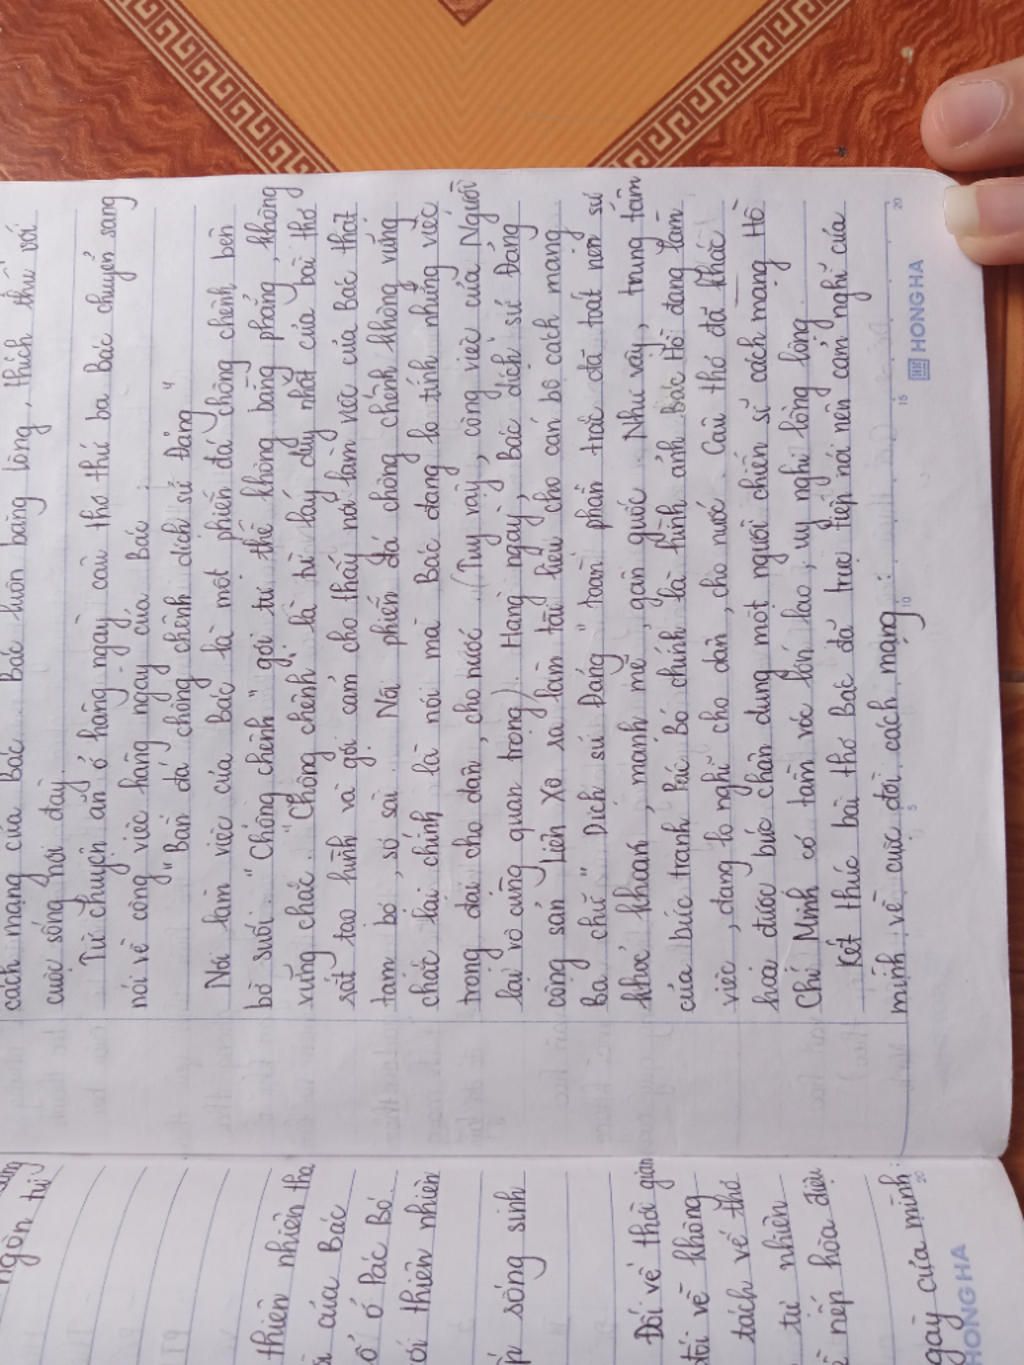 cách mạng của Bác. Bác luôn bằng lòng, thích thú với
cuộc sống nơi đây.
Từ chuyện ăn ở hằng ngày câu thơ thứ ba Bác chuyển sang
nói về công việc hằng ngày của Bác:
"Bàn đá chông chênh dịch sử Đảng"
Nơi làm việc của Bác là một phiến đá chông chênh bên
bờ suối. "Chông chênh" gợi tư thế không bằng phẳng, không
vững chắc. "Chông chênh" là từ láy duy nhất của bài thơ
rất tạo hình và gợi cảm cho thấy nơi làm việc của Bác thật
tạm bợ, sơ sài. Nơi phiến đá chông chênh không vững
chắc lại chính là nơi mà Bác đang lo tính những việc
trọng đại cho dân, cho nước. (Tuy vậy, công việc của Người
lại vô cùng quan trọng). Hàng ngày, Bác dịch sử Đảng
cộng sản Liên Xô ra làm tài liệu cho cán bộ cách mạng
ba chữ "Dịch sử Đảng" toàn phần trắc đã toát nên sự
khỏe khoắn, mạnh mẽ, gân guốc. Như vậy, trung tâm
của bức tranh Pác Bó chính là hình ảnh Bác Hồ đang làm
việc, đang lo nghĩ cho dân, cho nước. Câu thơ đã khắc
họa được bức chân dung một người chiến sĩ cách mạng Hồ
Chí Minh có tầm vóc lớn lao, uy nghi lồng lộng.
Kết thúc bài thơ Bác đã trực tiếp nói nên cảm nghĩ của
mình về cuộc đời cách mạng:
5 10 15 20
HONG HA
ngôn từ
thiên nhiên tha
của Bác
ở Pác Bó
thiên nhiên
sống sinh
Đối về thời gian
đối về không
tách vế thơ
tự nhiên
nếp hòa điệu
ngày của mình:
20
HONG HA